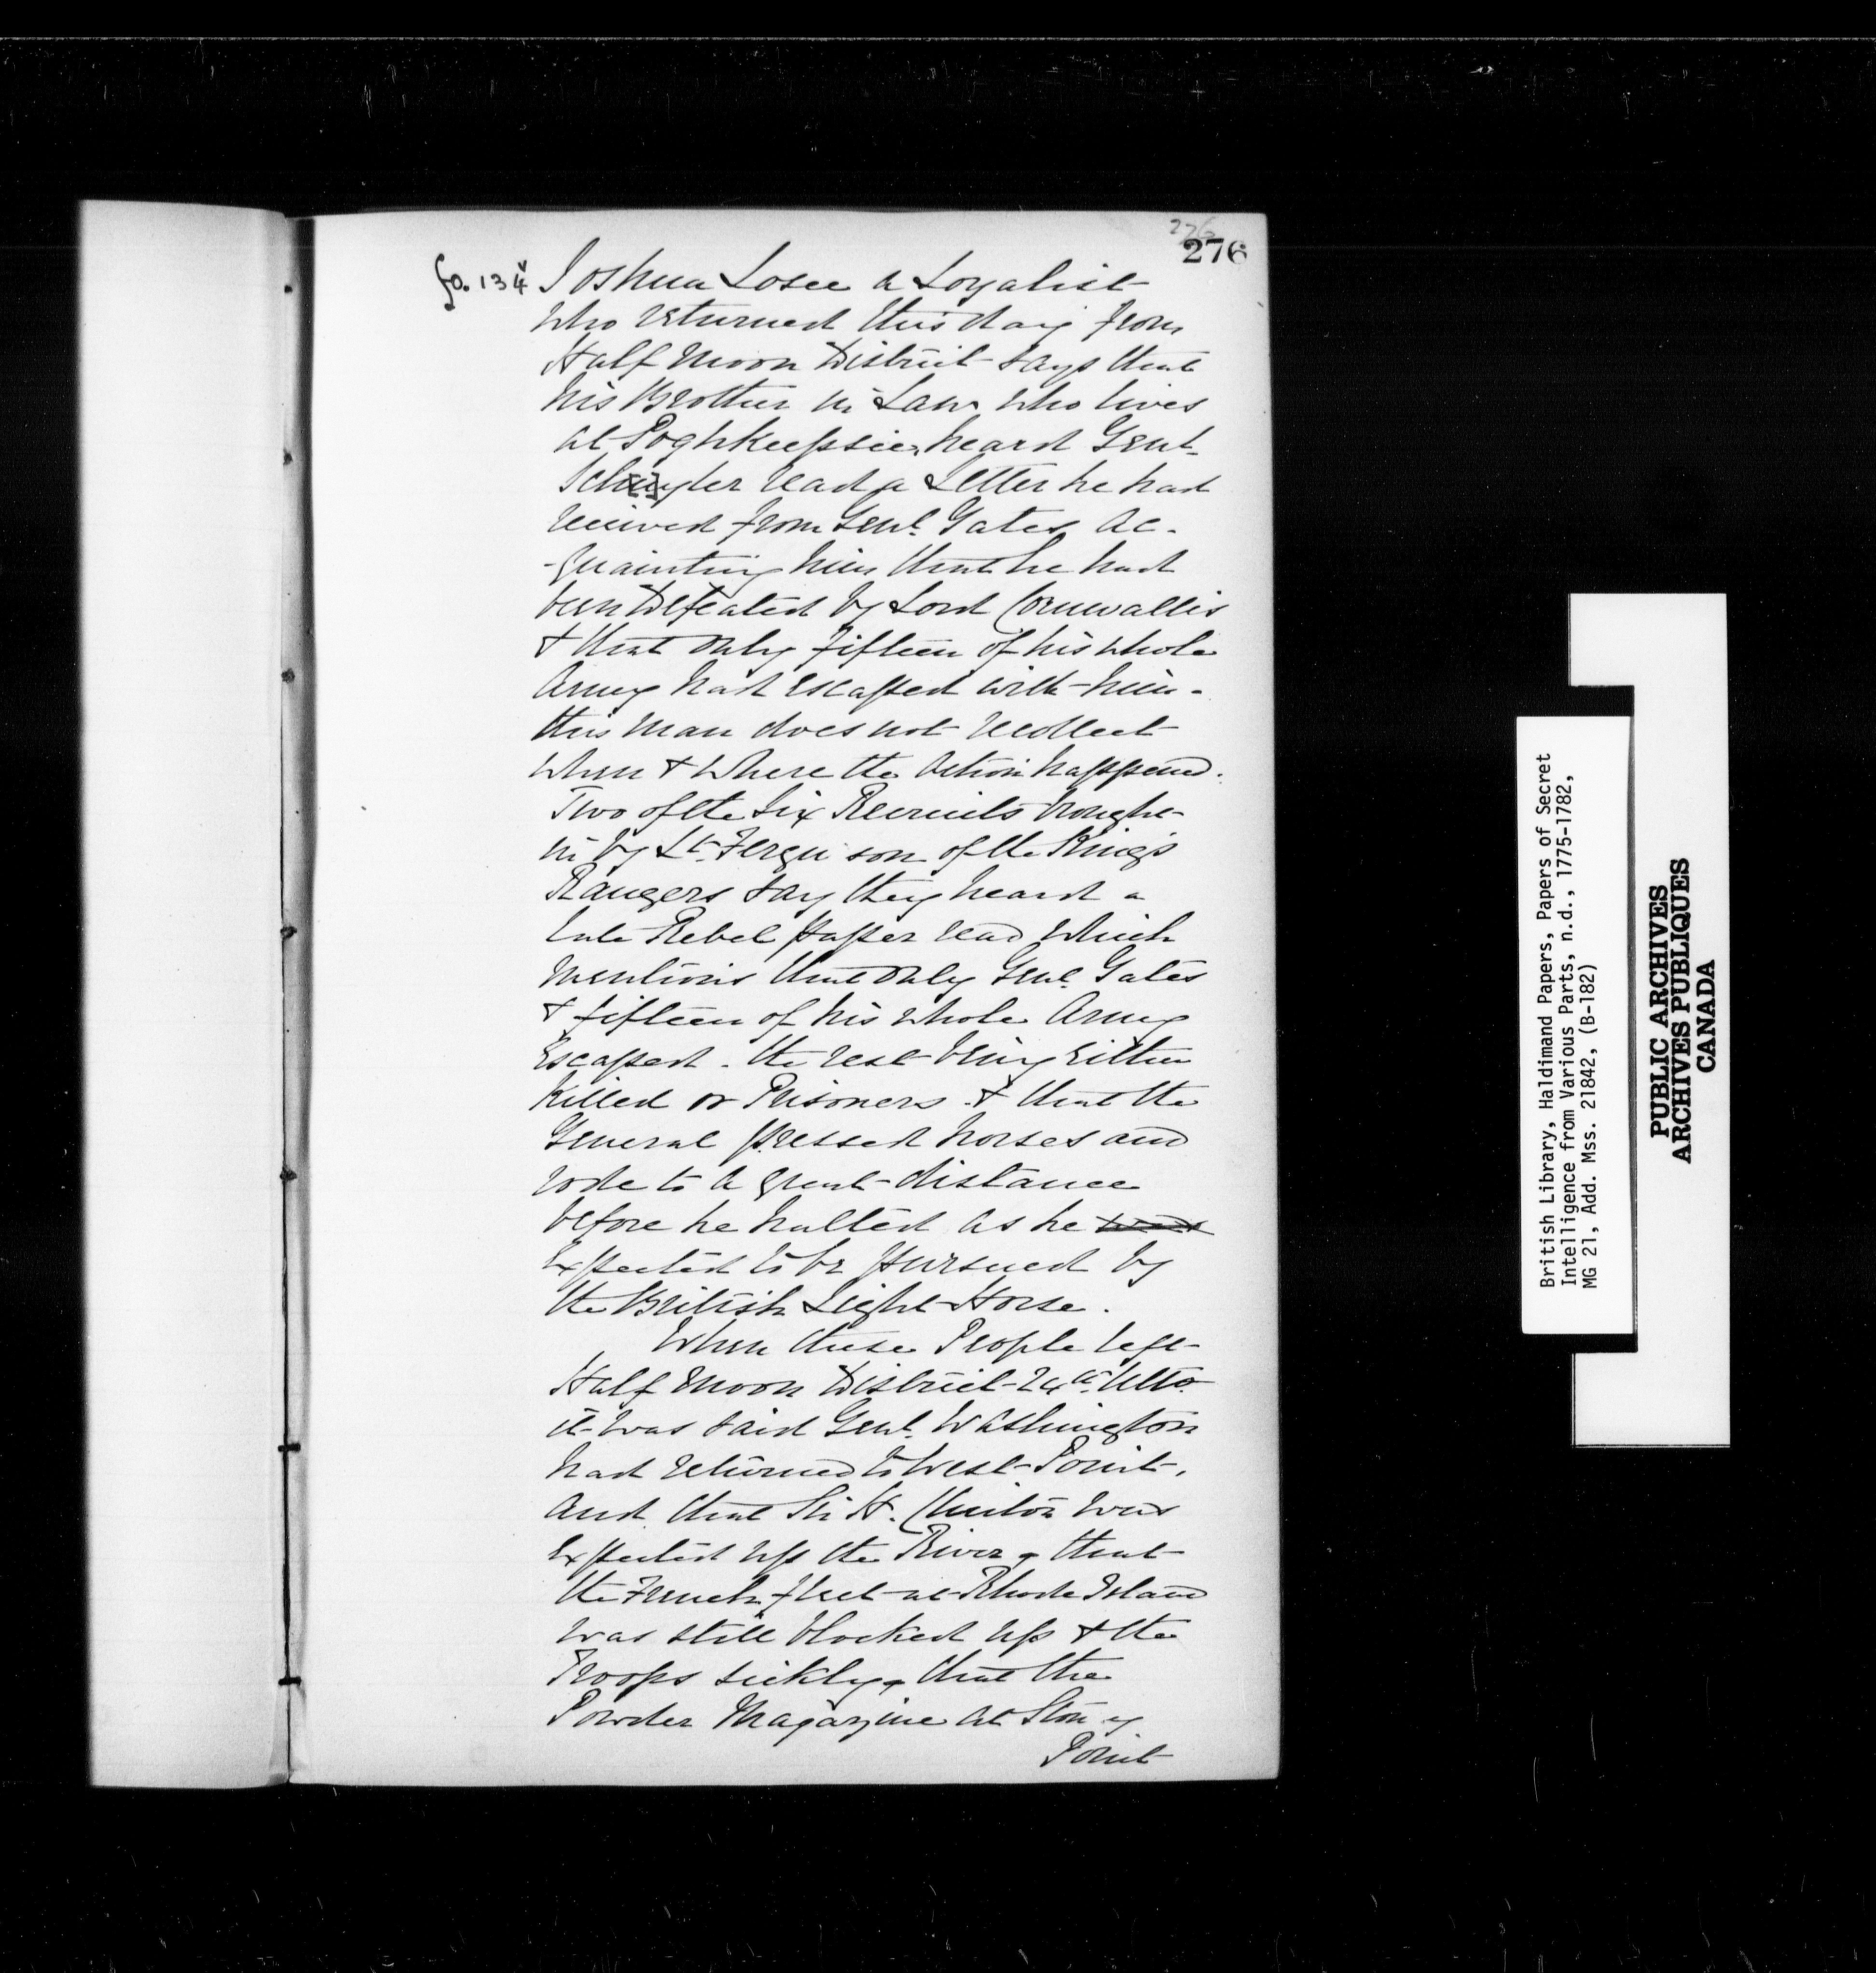 276
276
fo. 134v Joshua Losee a Loyalist
who returned this day from
Half Moon District says that
his Brother in Law who lives
at Poghkeepsie, heard Genl.
Schuyler read a Letter he had
received from Genl. Gates ac-
-quainting him that he had
been Defeated by Lord Cornwallis
& that only fifteen of his whole
Army had escaped with him.
this man does not recollect
when & where the Action happened.
Two of the Six Recruits brought
in by Lt. Ferguson of the Kings
Rangers say they heard a
late Rebel paper read which
mentions that only Genl. Gates
& fifteen of his whole Army
Escaped. the rest being either
Killed or Prisoners. & that the
General pressed horses and
rode to a great distance
before he halted as he was
expected to be pursued by
the British Light Horse.
When these People left
Half Moon District 24th. Ulto.
it was said Genl. Washington
had returned to West Point,
and that Sir H. Clinton was
expected up the River, that
the French fleet at Rhode Island
was still blocked up & the
Troops sickly, that the
Powder Magazine at Stoney
Point
British Library, Haldimand Papers, Papers of Secret
Intelligence from Various Parts, n.d., 1775-1782,
MG 21, Add. Mss. 21842, (B-182)
PUBLIC ARCHIVES
ARCHIVES PUBLIQUES
CANADA